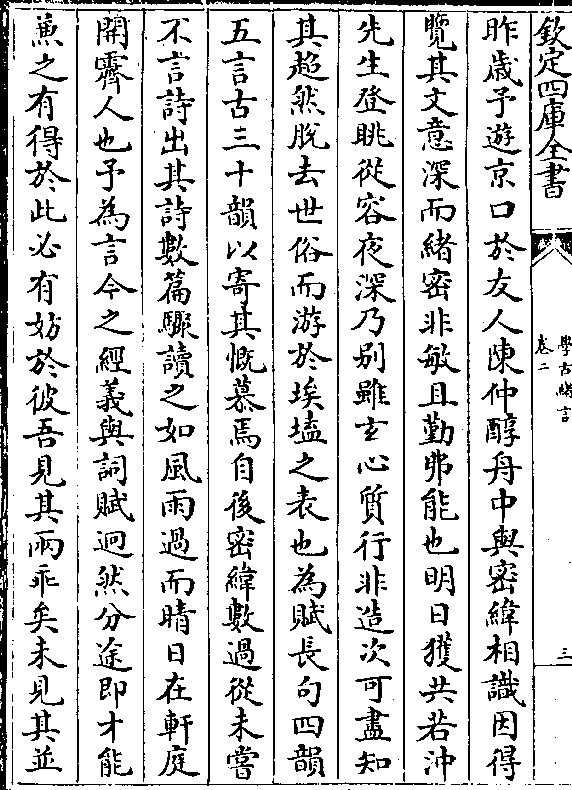 欽定四庫全書
學古緒言
卷二
三
昨歲予遊京口於友人陳仲醇舟中與密緯相識因得
覽其文意深而緒密非敏且勤弗能也明日獲共若沖
先生登眺從容夜深乃别雖玄心質行非造次可盡知
其超然脫去世俗而游於埃壒之表也為賦長句四韻
五言古三十韻以寄其慨慕焉自後密緯數過從未嘗
不言詩出其詩數篇驟讀之如風雨過而晴日在軒庭
開霽人也予為言今之經義與詞賦迥然分途即才能
兼之有得於此必有妨於彼吾見其兩乖矣未見其並